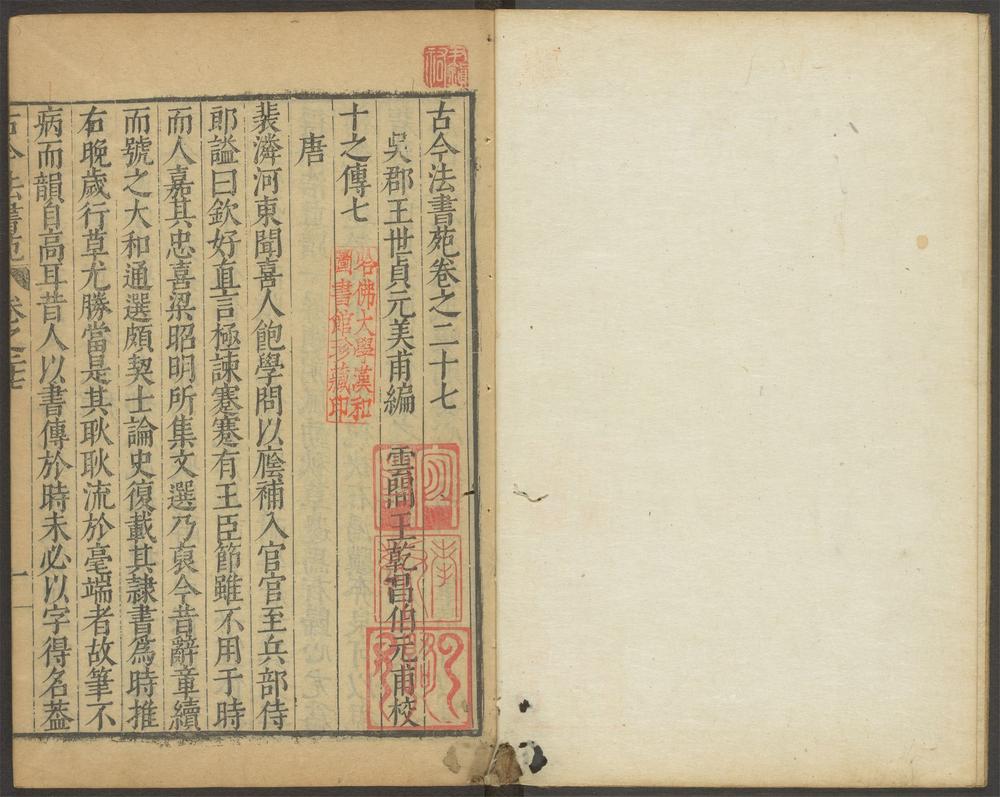 古今法書苑卷之二十七
吳郡王世貞元美甫編 雲間王乾昌伯元甫校
十之傳七
唐
裴潾河東聞喜人飽學問以廕補入官官至兵部侍
郎謚曰欽好直言極諫蹇蹇有王臣節雖不用于時
而人嘉其忠喜梁昭明所集文選乃裒今昔辭章續
而號之大和通選頗契士論史復載其隷書爲時推
右晚歲行草尤勝當是其耿耿流於毫端者故筆不
病而韻自高耳昔人以書傳於時未必以字得名葢
古今法書苑 卷之二十七 一
哈佛大學漢和
圖書館珍藏印